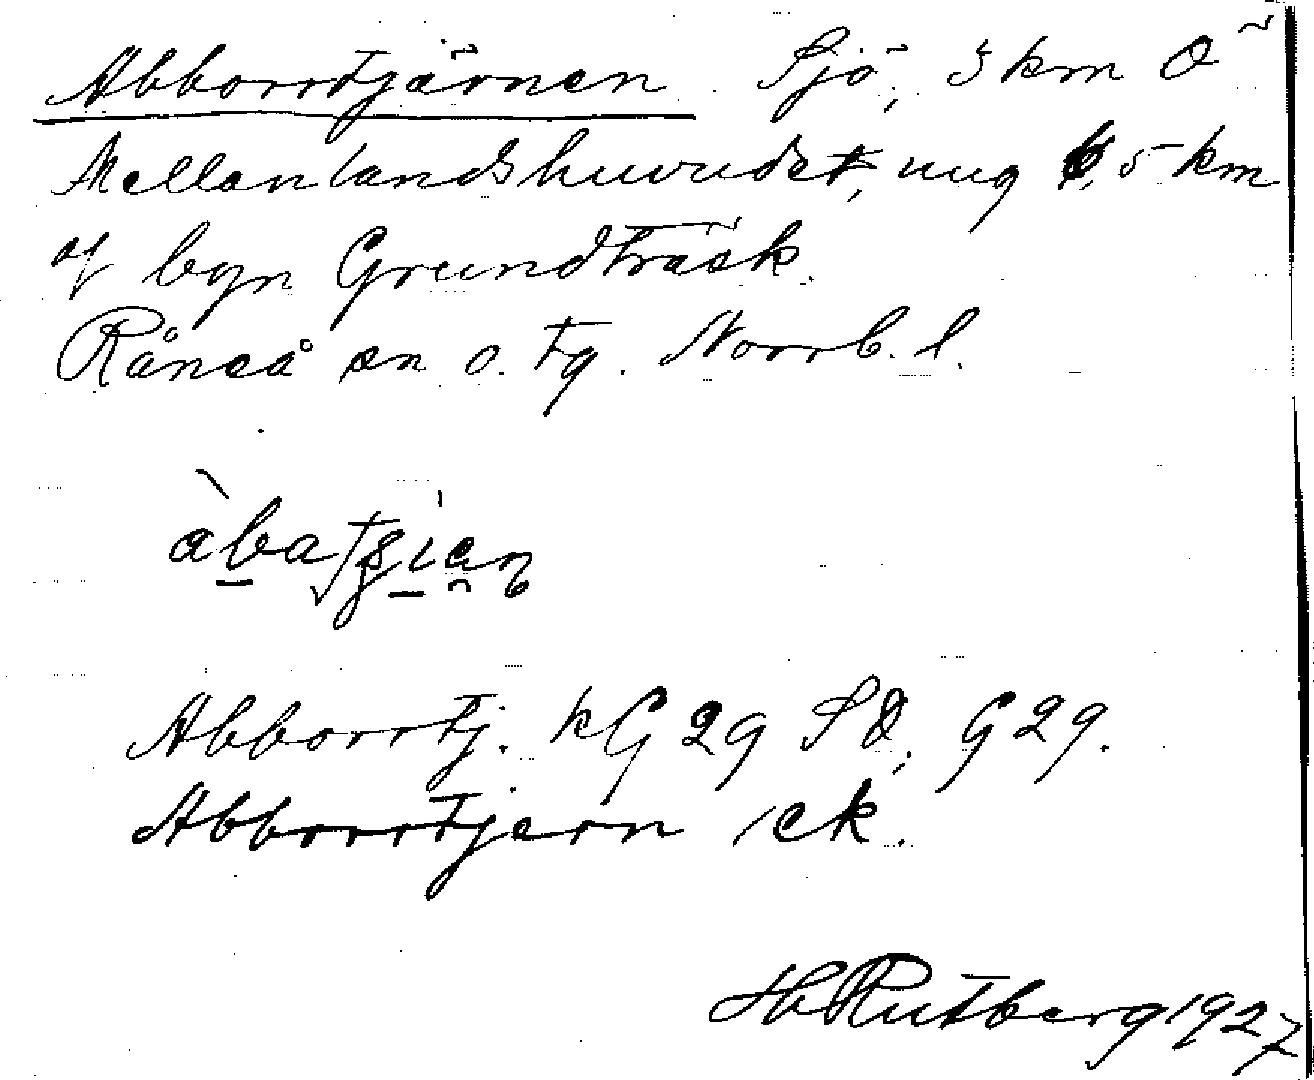 Abborrtjärnen Sjö, 3 km O
Mellanlandshuvudet, ung 5 km
af byn Grundträsk.
Råneå sn o. tg. Norrb. l.
Abborrtj. kG 29 SO, G 29.
Abborrtjern ek.
H Rutberg 1927